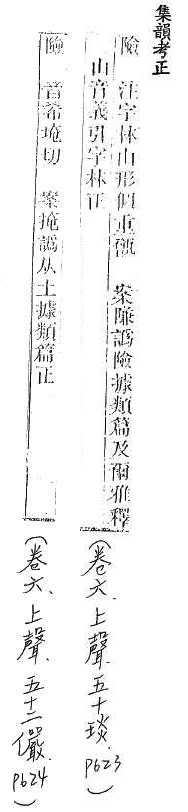 集韻考正
隒 注字林山形似重甑 案隒譌險據類篇及爾雅釋
山音義引字林正
險 音希埯切 案掩譌从土據類篇正
(卷六、上聲、五十琰、p623)
(卷六、上聲、五十二儼、p624)